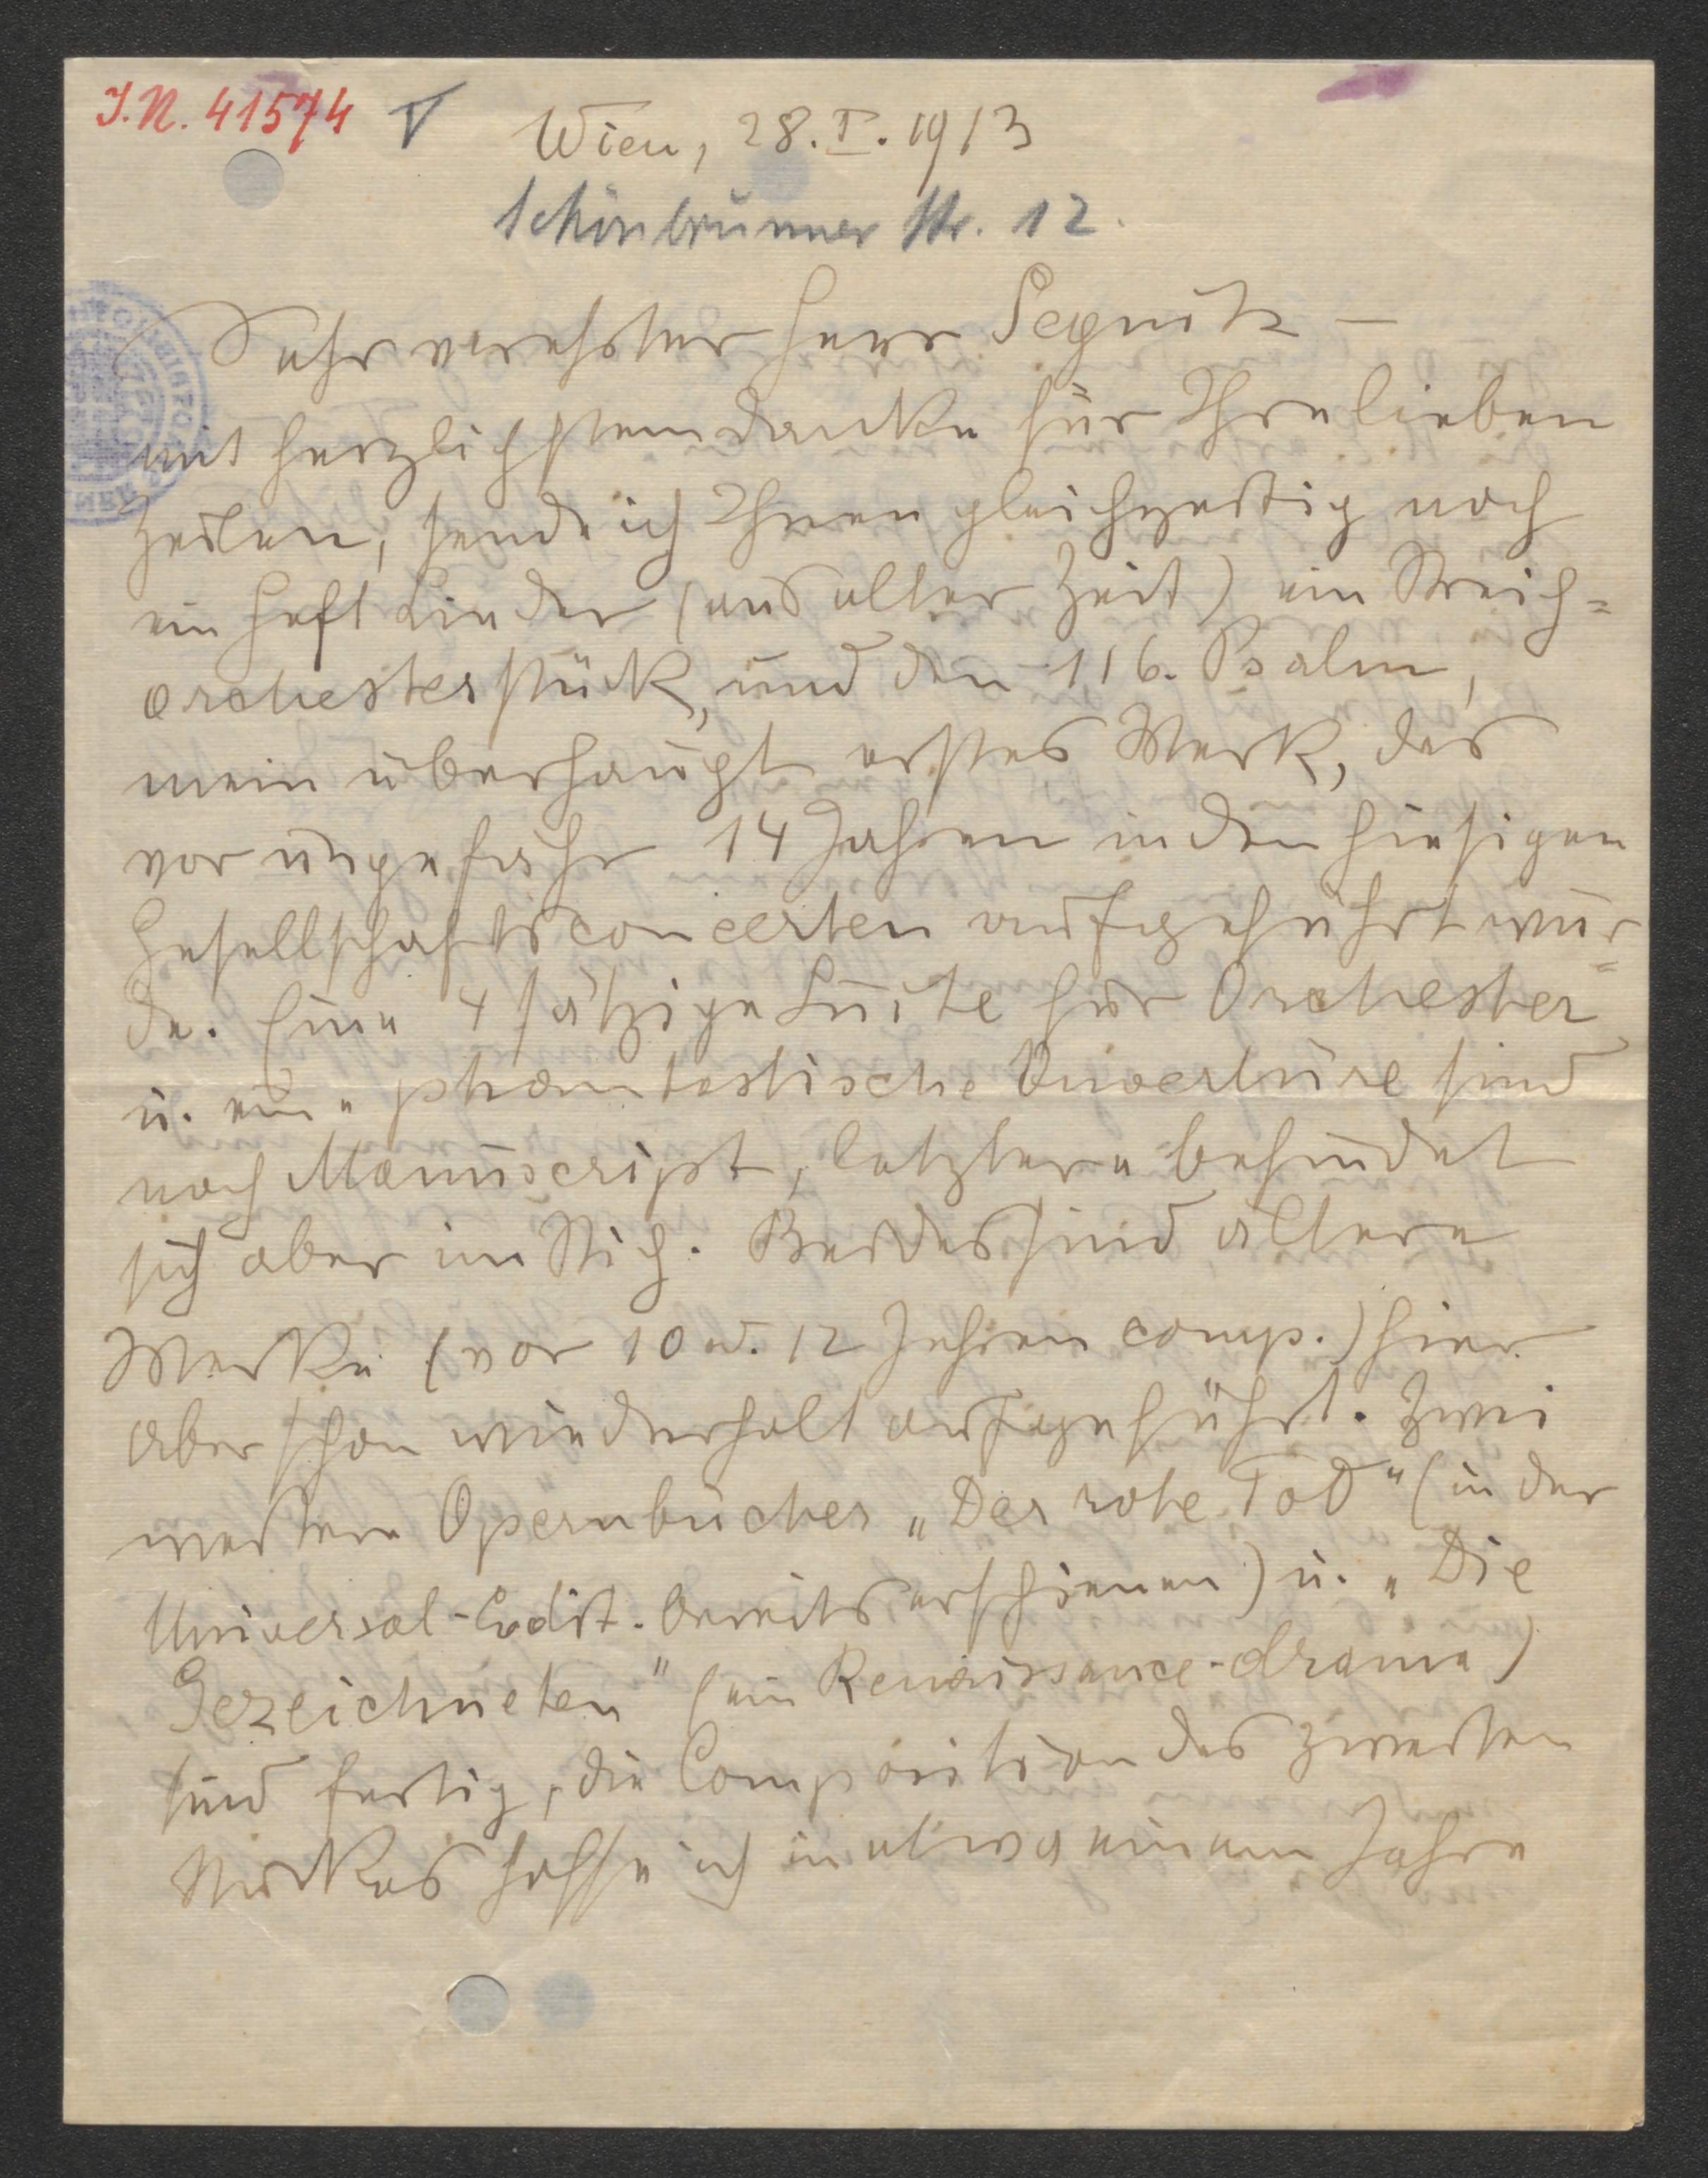 I.N. 41574
Wien, 28. I. 1913
Schönbrunner Str. 12.
Sehr verehrter Herr Segnitz –
mit herzlichstem Danke für Ihre lieben
Zeilen, sende ich Ihnen gleichzeitig noch
ein Heft Lieder (aus alter Zeit) ein Streich=
orchesterstück, und den 116. Psalm,
mein überhaupt erstes Werk, das
vor ungefähr 14 Jahren in den hiesigen
Gesellschaftsconcerten aufgeführt wur=
de. Eine 4 sätzige Suite für Orchester
u. eine phantastische Ouvertüre sind
noch Manuscript, letztere befindet
sich aber im Stich. Beides sind ältere
Werke (vor 10 u. 12 Jahren comp.) hier
aber schon wiederholt aufgeführt. Zwei
weitere Opernbücher „Der rote Tod" (in der
Universal-Edit. bereits erschienen) u. „Die
Gezeichneten" (ein Renaissance-drama)
sind fertig, die Composition des zweiten
Stückes hoffe ich in etwa einem Jahre